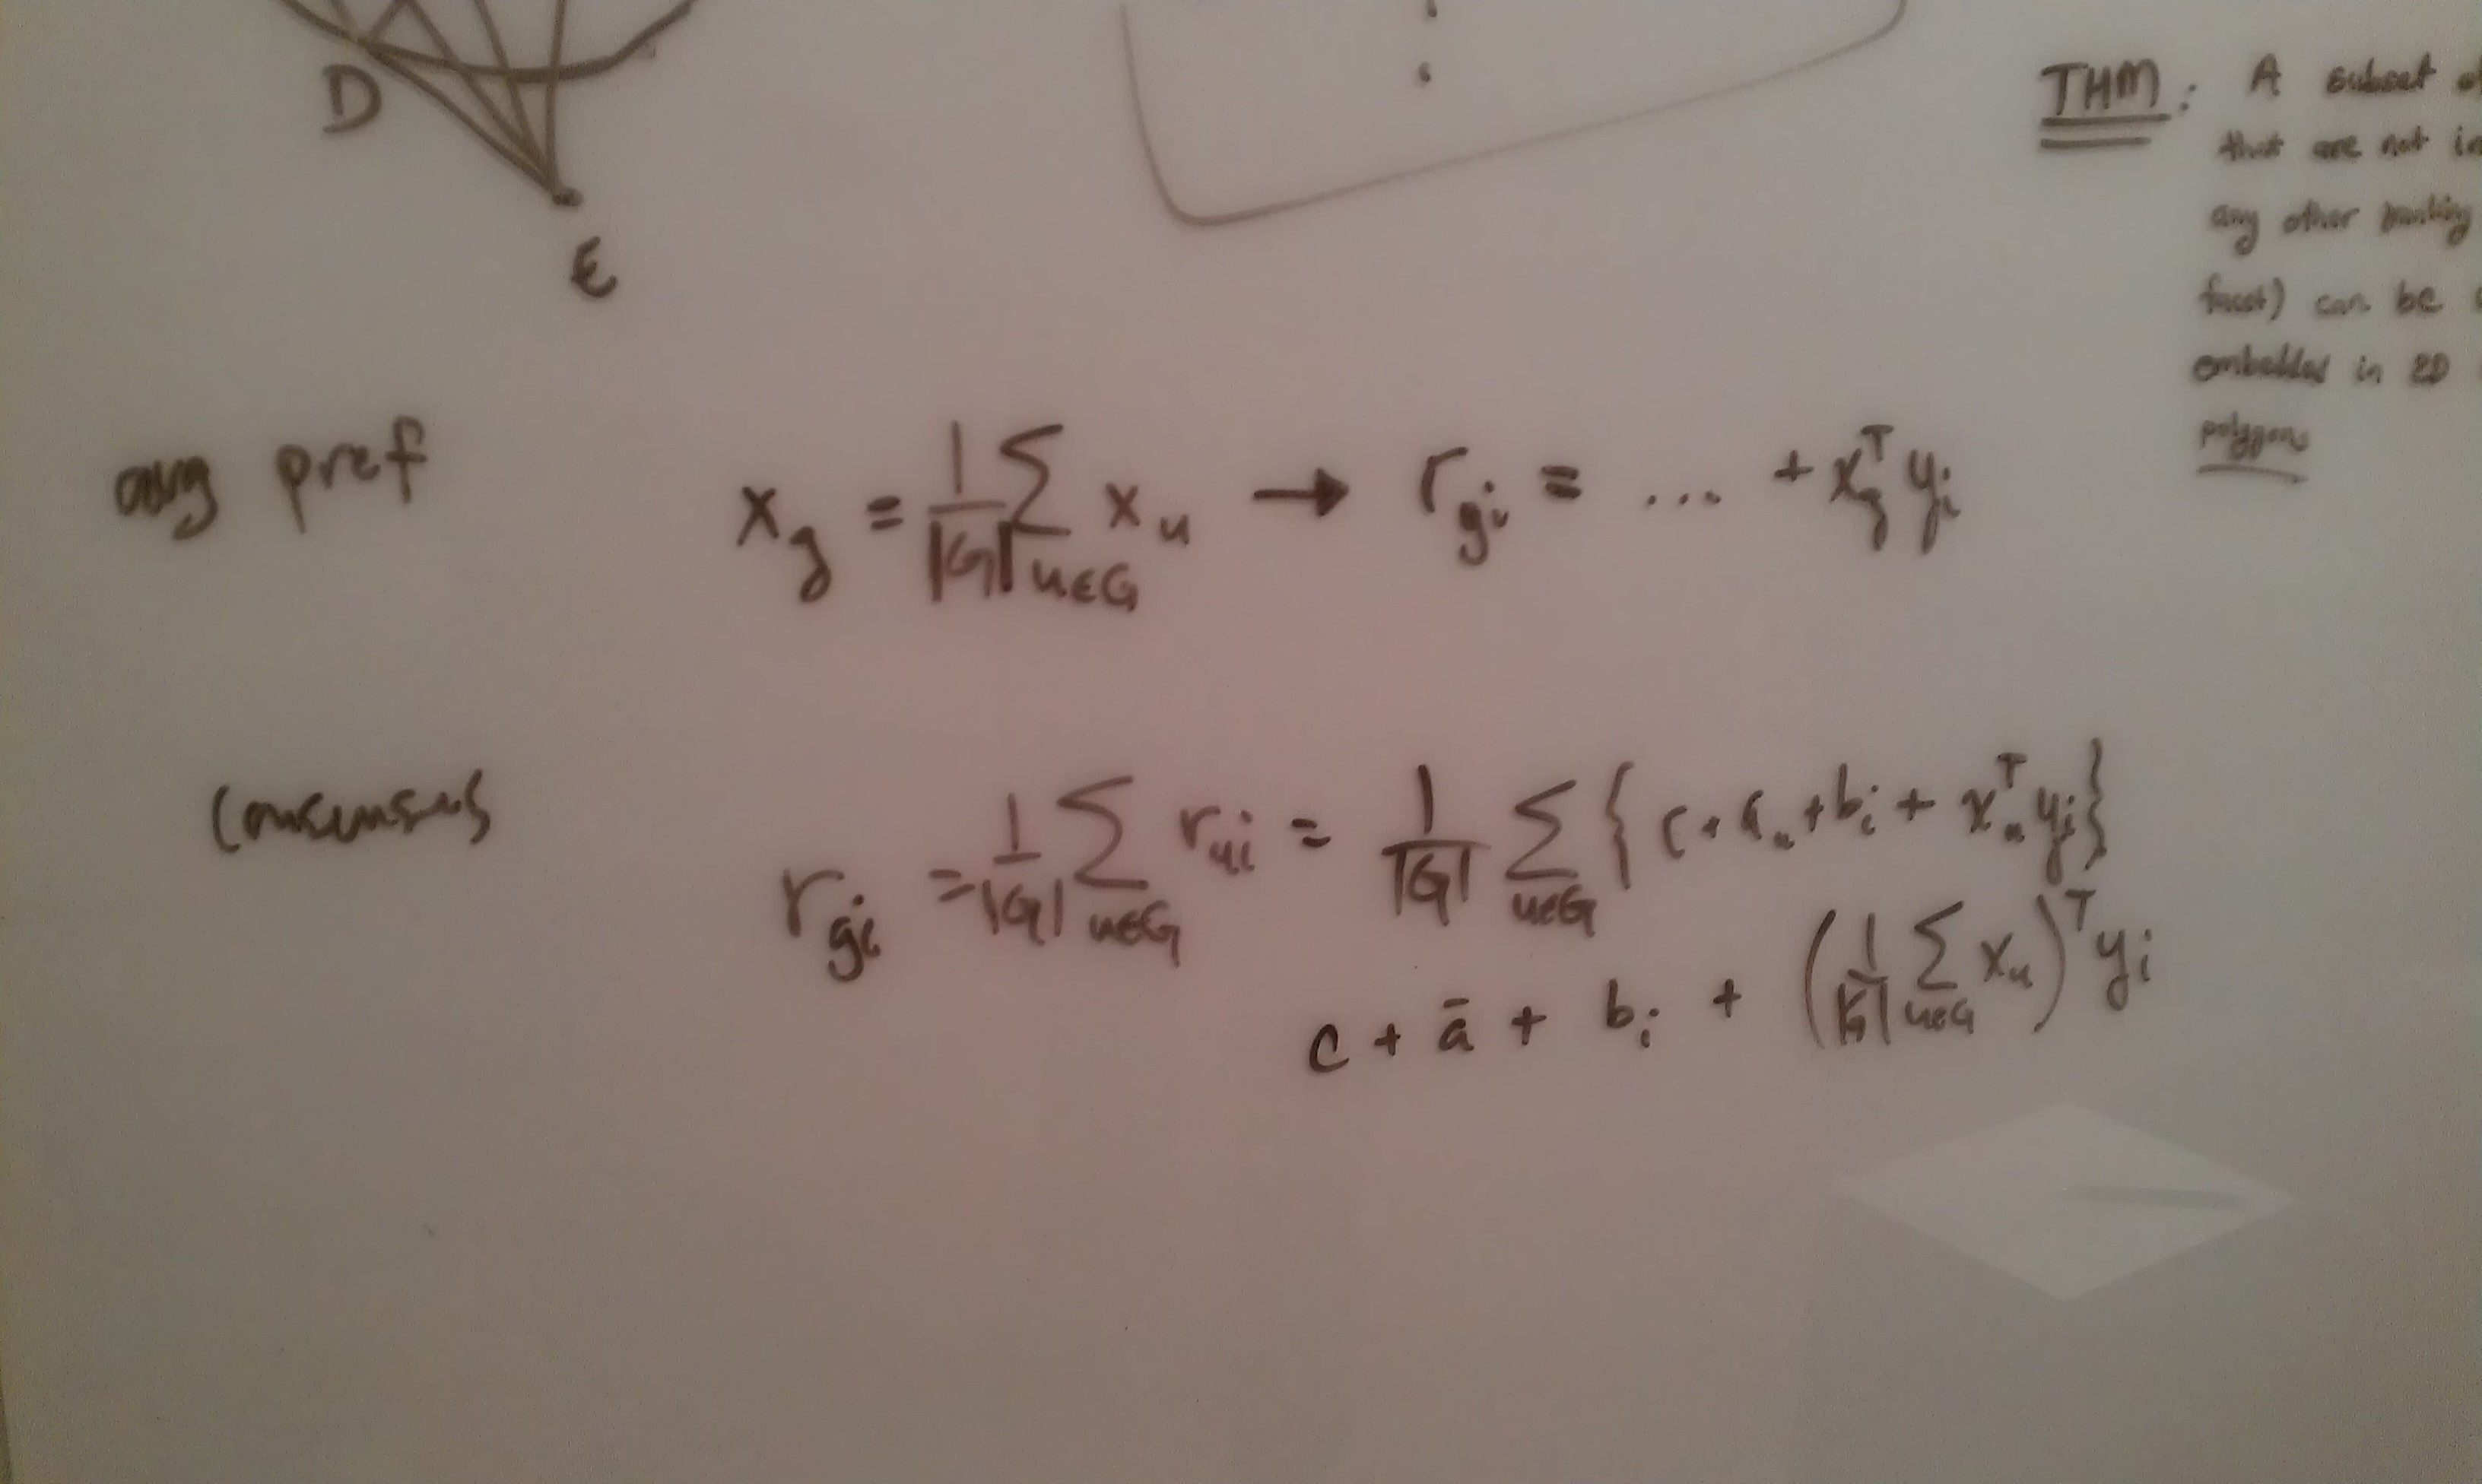 D
E
THM: A subset
that are not in
any other
facet) can be
embedded in 2D
polygons
avg pref x_g = 1/|G| ∑_{u∈G} x_u → r_{gi} = ... + x_g^T y_i
consensus r_{gi} = 1/|G| ∑_{u∈G} r_{ui} = 1/|G| ∑_{u∈G} { c + a_u + b_i + x_u^T y_i }
c + ā + b_i + (1/|G| ∑_{u∈G} x_u)^T y_i